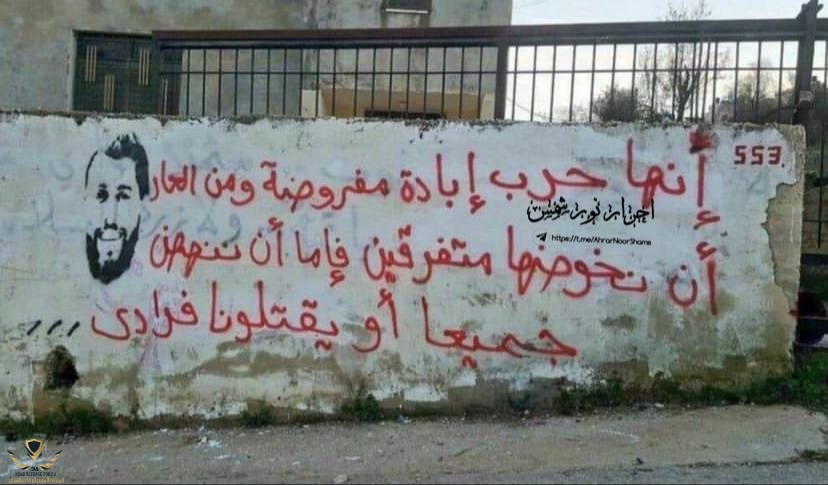 إنها حرب إبادة مفروضة ومن العار
553
أن نخوضها متفرقين فإما أن ننهض
جميعا أو يقتلونا فرادى ,,,
احرار نور شمس
https://t.me/AhrarNoorShams